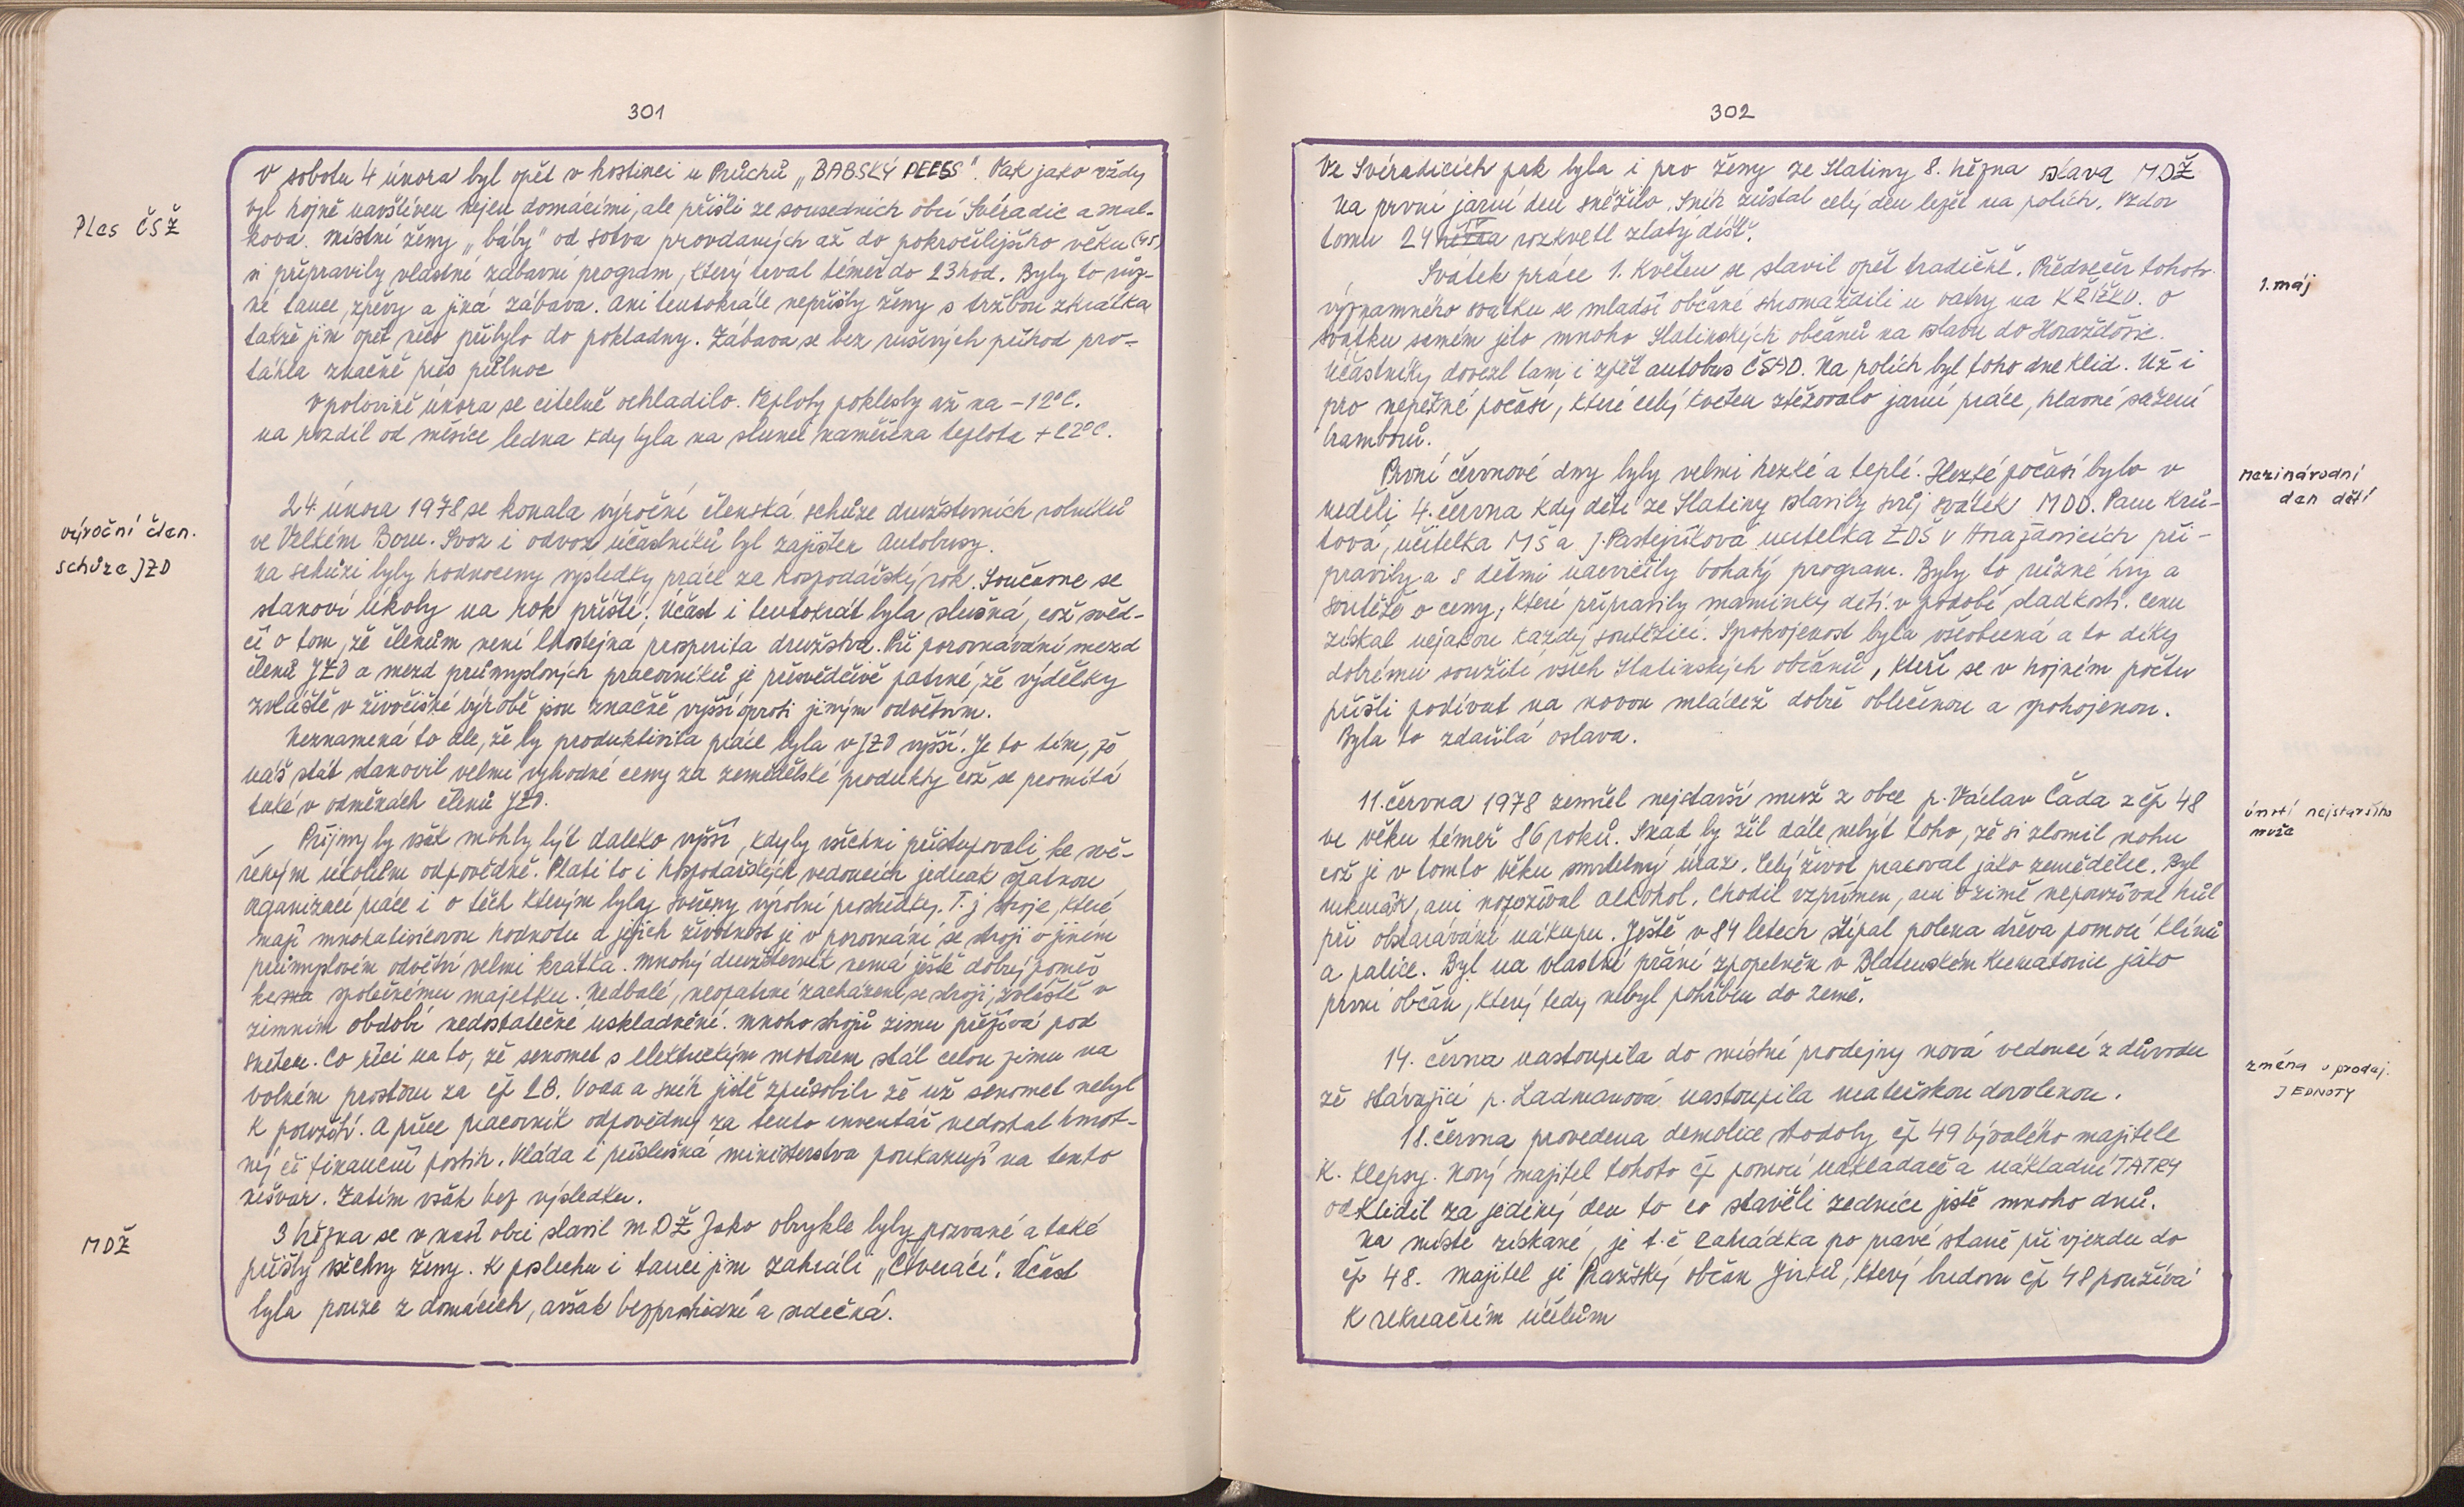 301
Ples ČSŽ
V sobotu 4 února byl opět v hostinci u Průchů „BABSKÝ PLES". Pak jako vždy
byl hojně navštíven nejen domácími, ale přišli ze sousedních obcí Svéradic a Mal-
kova. Místní ženy „báby" od sotva provdaných až do pokročilejšího věku (45)
si připravily vlastní zábavní program, který trval téměř do 23 hod. Byly to růz-
né tance, zpěvy a jiná zábava. Ani tentokráte nepřišly ženy s tržbou zkrátka
takže jim opět něco přibylo do pokladny. Zábava se bez rušivých příhod pro-
táhla značně přes půlnoc
V polovině února se citelně ochladilo. Teploty poklesly až na -12°C.
na rozdíl od měsíce ledna kdy byla na slunci naměřena teplota +22°C.
výroční člen.
schůze JZD
24. února 1978 se konala výroční členská schůze družstevních rolníků
ve Velkém Boru. Svoz i odvoz účastníků byl zajištěn Autobusy.
Na schůzi byly hodnoceny výsledky práce za hospodářský rok. Současne se
stanoví úkoly na rok příští. Účast i tentokrát byla slušná, což svěd-
čí o tom, že členům není lhostejná prosperita družstva. Při porovnávání mezd
členů JZD a mezd průmyslových pracovníků je přesvědčivě patrné, že výdělky
zvláště v živočišné výrobě jsou značně vyšší oproti jiným odvětvím.
Neznamená to ale, že by produktivita práce byla v JZD vyšší. Je to tím, že
náš stát stanovil velmi výhodné ceny za zemědělské produkty což se promítá
také v odměnách členů JZD.
Příjmy by však mohly být daleko vyšší, kdyby všichni přistupovali ke svě-
řeným úkolům odpovědně. Platí to i hospodářských vedoucích jednak špatnou
organizací práce i o těch kterým byly svěřeny výrobní prostředky. T. j stroje, které
mají mnohatisícovou hodnotu a jejich životnost je v porovnání se stroji v jiném
průmyslovém odvětví velmi krátká. Mnohý družstevník nemá ještě dobrý poměr
ke společnému majetku. Nedbalé, neopatrné zacházení se stroji, zvláště v
zimním období nedostatečné uskladnění. Mnoho strojů zimu přežívá pod
sněhem. Co říci na to, že senomet s elektrickým motorem stál celou zimu na
volném prostoru za čp 28. Voda a sníh jistě způsobili že už senomet nebyl
k použití. A přece pracovník odpovědný za tento inventář nedostal hmot-
ný či finanční postih. Vláda i příslušná ministerstva poukazují na tento
nešvar. Zatím však bez výsledku.
MDŽ
3 března se v naší obci slavil MDŽ Jako obvykle byly pozvané a také
přišly všechny ženy. K poslechu i tanci jim zahráli „Čtveráci". Účast
byla pouze z domácích, avšak bezprostřední a srdečná.
302
Ve Svéradicích pak byla i pro ženy ze Slatiny 8. března oslava MDŽ
Na první jarní den sněžilo. Sníh zůstal celý den ležet na polích. Vzdor
tomu 24 března rozkvetl zlatý déšť.
1. máj
Svátek práce 1. Květen se slavil opět tradičně. Předvečer tohoto
významného svátku se mladší občané shromáždili u vatry na KŘÍŽKU. O
svátku samém jelo mnoho Slatinských občanů na oslavu do Horažďovic.
Účastníky dovezl tam i zpět autobus ČSAD. Na polích byl toho dne klid. Už i
pro nepěkné počasí, které celý květen ztěžovalo jarní práce, hlavně sázení
bramborů.
Mezinárodní
den dětí
První červnové dny byly velmi hezké a teplé. Hezké počasí bylo v
neděli 4. června kdy děti ze Slatiny slavily svůj svátek MDD.
tová, učitelka MŠ a J. Pastejříková učitelka ZDŠ v Horažďovicích při-
pravily a s dětmi nacvičily bohatý program. Byly to různé hry a
soutěže o ceny, které připravily maminky dětí v podobě sladkostí. Cenu
získal nějakou každý soutěžící. Spokojenost byla všeobecná a to díky
dobrému soužití všech Slatinských občanů, kteří se v hojném počtu
přišli podívat na novou mládež dobře oblečenou a spokojenou.
Byla to zdařilá oslava.
úmrtí nejstaršího
muže
11. června 1978 zemřel nejstarší muž z obce p. Václav Čada z čp 48
ve věku téměř 86 roků. Snad by žil dále nebýt toho, že si zlomil nohu
což je v tomto věku smrtelný úraz. Celý život pracoval jako zemědělec. Byl
nekuřák, ani nepožíval alkohol. Chodil vzpřímen, ani v zimě nepoužíval hůl
při obstarávání nákupu. Ještě v 84 letech štípal polena dřeva pomocí klínů
a palice. Byl na vlastní přání zpopelněn v Blatenském Krematoriu jako
první občan, který tedy nebyl pohřben do země.
změna v prodej.
JEDNOTY
14. června nastoupila do místní prodejny nová vedoucí z důvodu
že stávající p. Ladmanová nastoupila mateřskou dovolenou.
18. června provedena demolice stodoly čp 49 bývalého majitele
K. Klepsy. Nový majitel tohoto čp pomocí nakladače a nákladní TATRY
odklidil za jediný den to co stavěli zedníci jistě mnoho dnů.
Na místě získané, je t. č zahrádka po pravé straně při vjezdu do
čp 48. Majitel je Pražský občan který budovu čp 48 používá
k rekreačním účelům